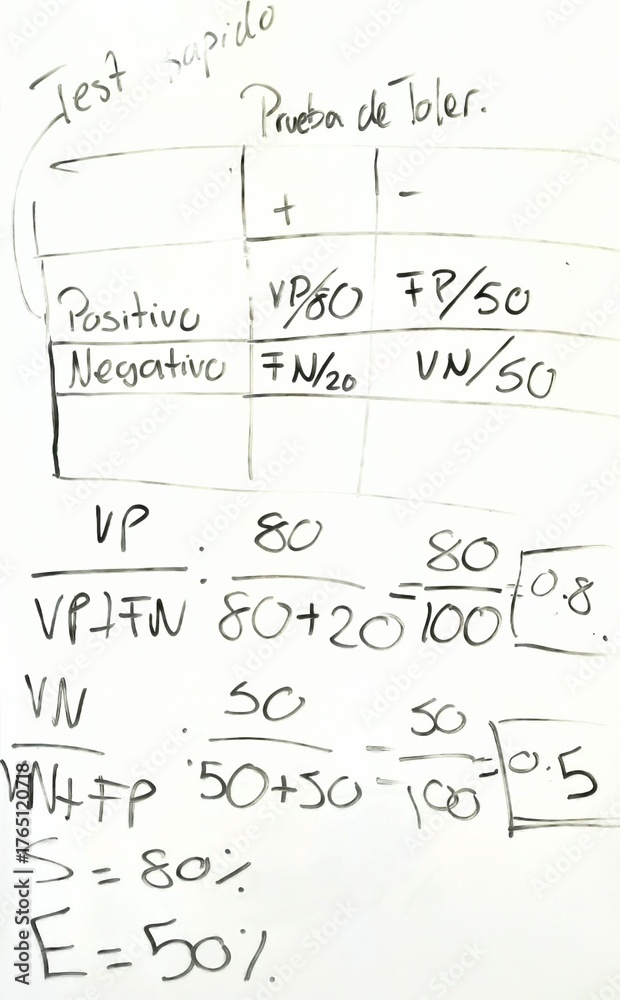 Test rapido
Prueba de Toler.
+ -
Positivo VP/80 FP/50
Negativo FN/20 VN/50
VP/VP+FN : 80/80+20 = 80/100 = 0.8
VN/VN+FP : 50/50+50 = 50/100 = 0.5
S = 80%
E = 50%
Adobe Stock | #1765120718